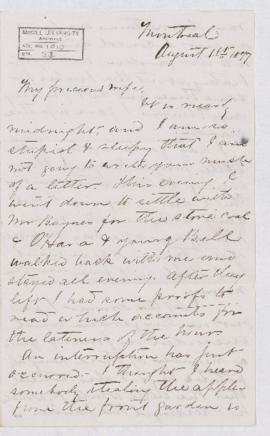 McGILL UNIVERSITY
ARCHIVES
ACC. NO.
REF.
Montreal
August 1st 1877
My precious wife,
It is nearly
midnight and I am so
stupid & sleepy that I am
not going to write you much
of a letter. This evening I
went down to settle with
Mr Baynes for the stone coal
& O'Hara & young Bell
walked back with me and
stayed all evening. After they
left I had some proofs to
read which accounts for
the lateness of the hour.
An interruption has just
occurred - I thought I heard
somebody stealing the apples
from the front garden so